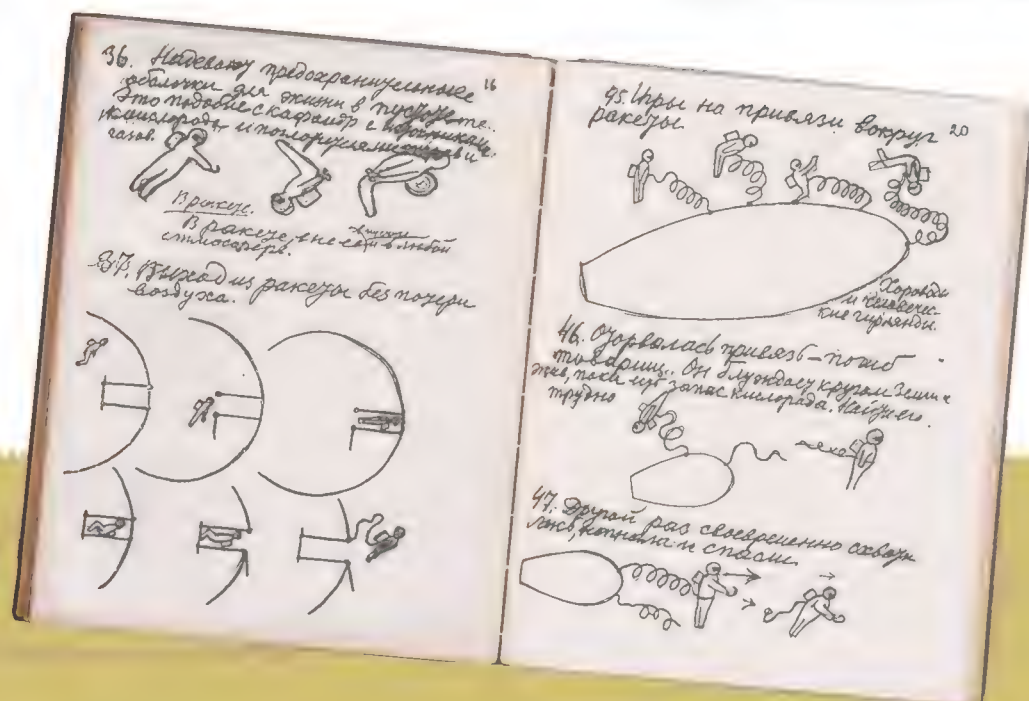 36. Надевают предохранительные 16
оболочки для жизни в пустоте.
Это подобие скафандр с
кислорода и поглотителями и
газов.
В ракете.
В ракете, вне её и в любой
атмосфере.
37. Выход из ракеты без потери
воздуха.
45. Игры на привязи вокруг 20
ракеты
Хороводы
и человечес-
кие гирлянды.
46. Оторвалась привязь – погиб
товарищ. Он блуждает кругом Земли
жив, пока идёт запас кислорода. Найти его
трудно
47. Другой раз своевременно схвати
лись, нагнали и спасли.